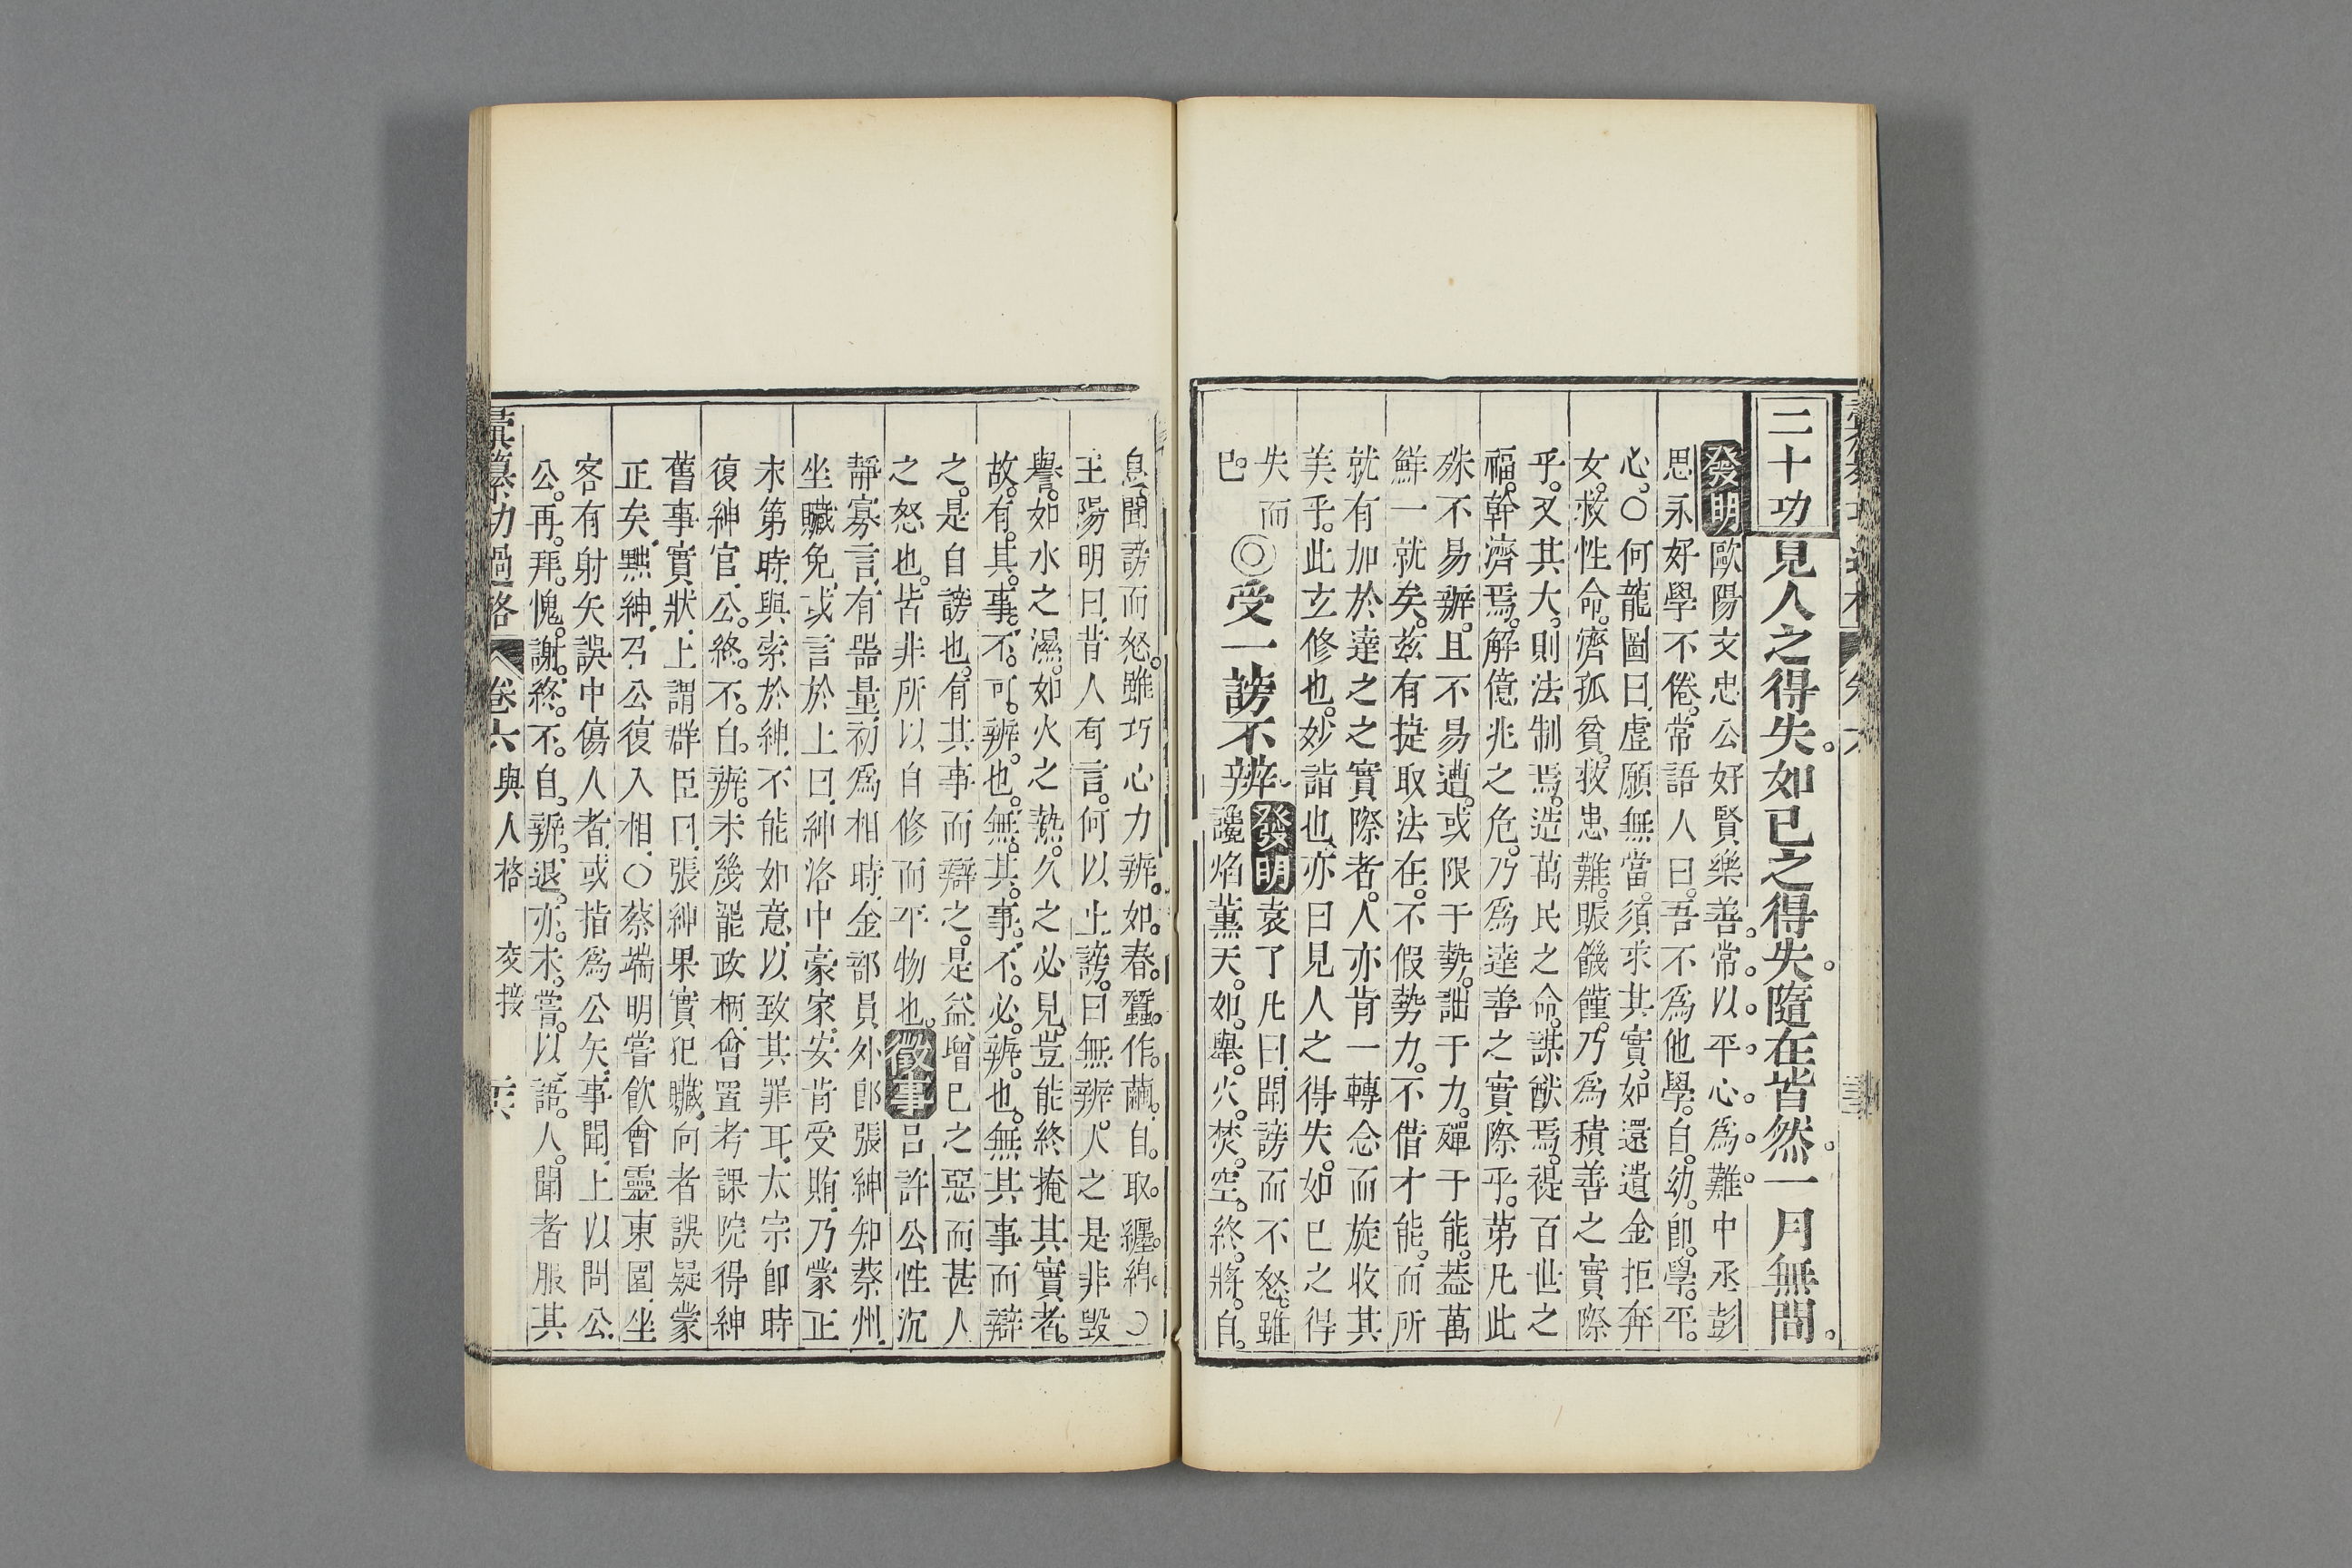 二十功
見人之得失。如己之得失。隨在皆然。一月無間。
發明 歐陽文忠公好賢樂善。常以平心爲難。中丞彭
思永好學不倦。常語人曰。吾不爲他學。自。幼。卽。學。平。
心。〇何龍圖曰。虛願無當。須求其實。如還遺金拒奔
女。救性命。濟孤貧。救患難。賑饑饉。乃爲積善之實際
乎。又其大。則法制焉。造萬民之命。謀猷焉。禔百世之
福。幹濟焉。解億兆之危。乃爲達善之實際乎。第凡此
殊不易辦。且不易遭。或限于勢。詘于力。殫于能。蓋萬
鮮一就矣。茲有捷取法在。不假勢力。不借才能。而所
就有加於達之之實際者。人亦肯一轉念而旋收其
美乎。此玄修也。妙詣也。亦曰見人之得失。如己之得
失而
已。
◎受一謗不辨
發明 袁了凡曰。聞謗而不怒。雖
讒焰薰天。如。舉。火。焚。空。終。將。自。
息。聞謗而怒。雖巧心力辨。如。春。蠶。作。繭。自。取。纏。綿。〇
王陽明曰。昔人有言。何以止謗。曰無辨。人之是非毀
譽。如水之濕。如火之熱。久之必見。豈能終掩其實者。
故。有。其。事。不。可。辨。也。無。其。事。不。必。辨。也。無其事而辯
之。是自謗也。有其事而辯之。是益增己之惡而甚人
之怒也。皆非所以自修而平物也。 徵事 呂許公性沉
靜寡言。有器量。初爲相時。金部員外郎張紳知蔡州。
坐贓免。或言於上曰。紳洛中豪家。安肯受賄。乃蒙正
未第時。與索於紳。不能如意。以致其罪耳。太宗卽時
復紳官。公。終。不。自。辨。未幾罷政柄。會置考課院得紳
舊事實狀。上謂群臣曰。張紳果實犯贓。向者誤疑蒙
正矣。黜紳。召公復入相。〇蔡端明嘗飲會靈東園。坐
客有射矢誤中傷人者。或指爲公矢。事聞。上以問公。
公。再。拜。愧。謝。終。不。自。辨。退。亦。未。嘗。以。語。人。聞者服其
彙纂功過格 卷六 與人格 交接